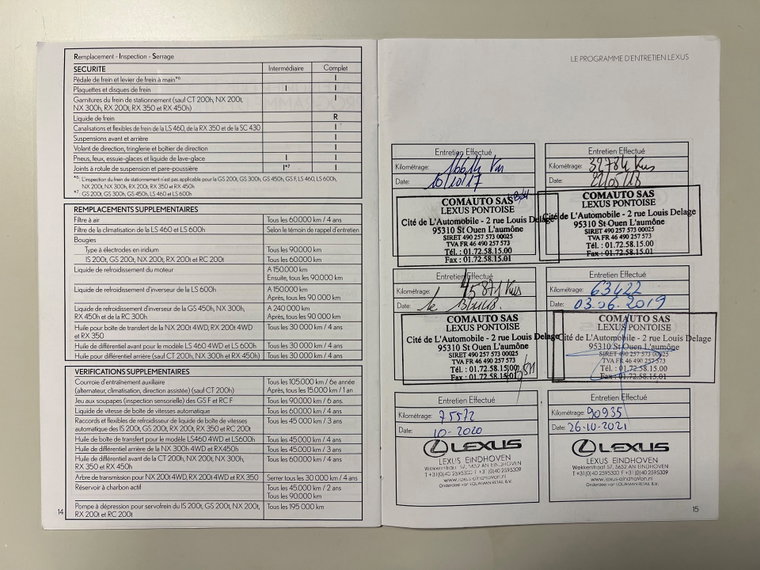 Remplacement - Inspection - Serrage
SECURITE Intermédiaire Complet
Pédale de frein et levier de frein à main*⁶ I
Plaquettes et disques de frein I I
Garnitures du frein de stationnement (sauf CT 200h, NX 200t, I
NX 300h, RX 200t, RX 350 et RX 450h)
Liquide de frein R
Canalisations et flexibles de frein de la LS 460, de la RX 350 et de la SC 430 I
Suspensions avant et arrière I
Volant de direction, tringlerie et boîtier de direction I
Pneus, feux, essuie-glaces et liquide de lave-glace I I
Joints à rotule de suspension et pare-poussière I*⁷ I
*⁶: L'inspection du frein de stationnement n'est pas applicable pour la GS 200t, GS 300h, GS 450h, GS F, LS 460, LS 600h,
NX 200t, NX 300h, RX 200t, RX 350 et RX 450h
*⁷: GS 200t, GS 300h, GS 450h, LS 460 et LS 600h
REMPLACEMENTS SUPPLEMENTAIRES
Filtre à air Tous les 60.000 km / 4 ans
Filtre de la climatisation de la LS 460 et LS 600h Selon le témoin de rappel d'entretien
Bougies
Type à électrodes en iridium Tous les 90.000 km
IS 200t, GS 200t, NX 200t, RX 200t et RC 200t Tous les 60.000 km
Liquide de refroidissement du moteur A 150.000 km
Ensuite, tous les 90.000 km
Liquide de refroidissement d'inverseur de la LS 600h A 150.000 km
Après, tous les 90.000 km
Liquide de refroidissement d'inverseur de la GS 450h, NX 300h, A 240 000 km
RX 450h et de la RC 300h Après, tous les 90 000 km
Huile pour boîte de transfert de la NX 200t 4WD, RX 200t 4WD Tous les 30 000 km / 4 ans
et RX 350
Huile de différentiel avant pour le modèle LS 460 4WD et LS 600h Tous les 30 000 km / 4 ans
Huile pour différentiel arrière (sauf CT 200h, NX 300h et RX 450h) Tous les 30 000 km / 4 ans
VERIFICATIONS SUPPLEMENTAIRES
Courroie d'entraînement auxiliaire Tous les 105.000 km / 6e année
(alternateur, climatisation, direction assistée) (sauf CT 200h) Après, tous les 15.000 km / 1 an
Jeu aux soupapes (inspection sensorielle) des GS F et RC F Tous les 90.000 km / 6 ans.
Liquide de vitesse de boîte de vitesses automatique Tous les 60.000 km / 4 ans
Raccords et flexibles de refroidisseur de liquide de boîte de vitesses Tous les 45.000 km / 3 ans
automatique des IS 200t, GS 200t, RX 200t, RX 350 et RC 200t
Huile de boîte de transfert pour le modèle LS460 4WD et LS600h Tous les 45 000 km / 4 ans
Huile de différentiel arrière de la NX 300h 4WD et RX450h Tous les 45.000 km / 3 ans
Huile de différentiel avant de la CT 200h, NX 200t, NX 300h, Tous les 60.000 km / 4 ans
RX 350 et RX 450h
Arbre de transmission pour NX 200t 4WD, RX 200t 4WD et RX 350 Serrer tous les 30 000 km / 4 ans
Réservoir à charbon actif Tous les 45.000 km / 2 ans
Tous les 90.000 km
Pompe à dépression pour servofrein du IS 200t, GS 200t, NX 200t, Tous les 195 000 km
RX 200t et RC 200t
14
LE PROGRAMME D'ENTRETIEN LEXUS
Entretien Effectué
Kilométrage: 16614 Kms
Date: 10/10/17
COMAUTO SAS
LEXUS PONTOISE
Cité de L'Automobile - 2 rue Louis Delage
95310 St Ouen L'aumône
SIRET 490 257 573 00025
TVA FR 46 490 257 573
Tél. : 01.72.58.15.00
Fax : 01.72.58.15.01
Entretien Effectué
Kilométrage: 32784 Kms
Date: 22/05/18
COMAUTO SAS
LEXUS PONTOISE
Cité de L'Automobile - 2 rue Louis Delage
95310 St Ouen L'aumône
SIRET 490 257 573 00025
TVA FR 46 490 257 573
Tél. : 01.72.58.15.00
Fax : 01.72.58.15.01
Entretien Effectué
Kilométrage: 45871 Kms
Date: le
COMAUTO SAS
LEXUS PONTOISE
Cité de L'Automobile - 2 rue Louis Delage
95310 St Ouen L'aumône
SIRET 490 257 573 00025
TVA FR 46 490 257 573
Tél. : 01.72.58.15.00
Fax : 01.72.58.15.01
Entretien Effectué
Kilométrage: 63422
Date: 03.06.2019
COMAUTO SAS
LEXUS PONTOISE
Cité de L'Automobile - 2 rue Louis Delage
95310 St Ouen L'aumône
SIRET 490 257 573 00025
TVA FR 46 490 257 573
Tél. : 01.72.58.15.00
Fax : 01.72.58.15.01
Entretien Effectué
Kilométrage: 75572
Date: 10-2020
LEXUS
LEXUS EINDHOVEN
Wekkerstraat 57, 5652 AN EINDHOVEN
T +31(0)40 2595300 F +31 (0)40 2595309
www.lexus-eindhoven.nl
Onderdeel van LOUWMAN RETAIL B.V.
Entretien Effectué
Kilométrage: 90935
Date: 26-10-2021
LEXUS
LEXUS EINDHOVEN
Wekkerstraat 57, 5652 AN EINDHOVEN
T +31(0)40 2595300 F +31 (0)40 2595309
www.lexus-eindhoven.nl
Onderdeel van LOUWMAN RETAIL B.V.
15